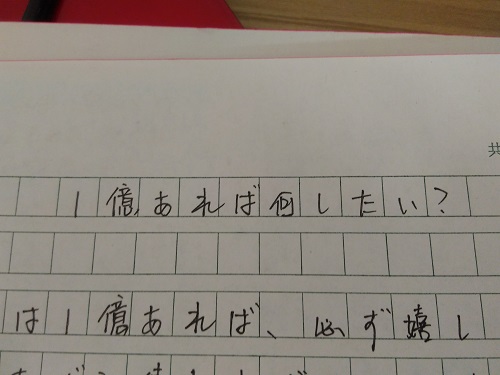 共
1億あれば何したい?
は1億あれば、必ず嬉し